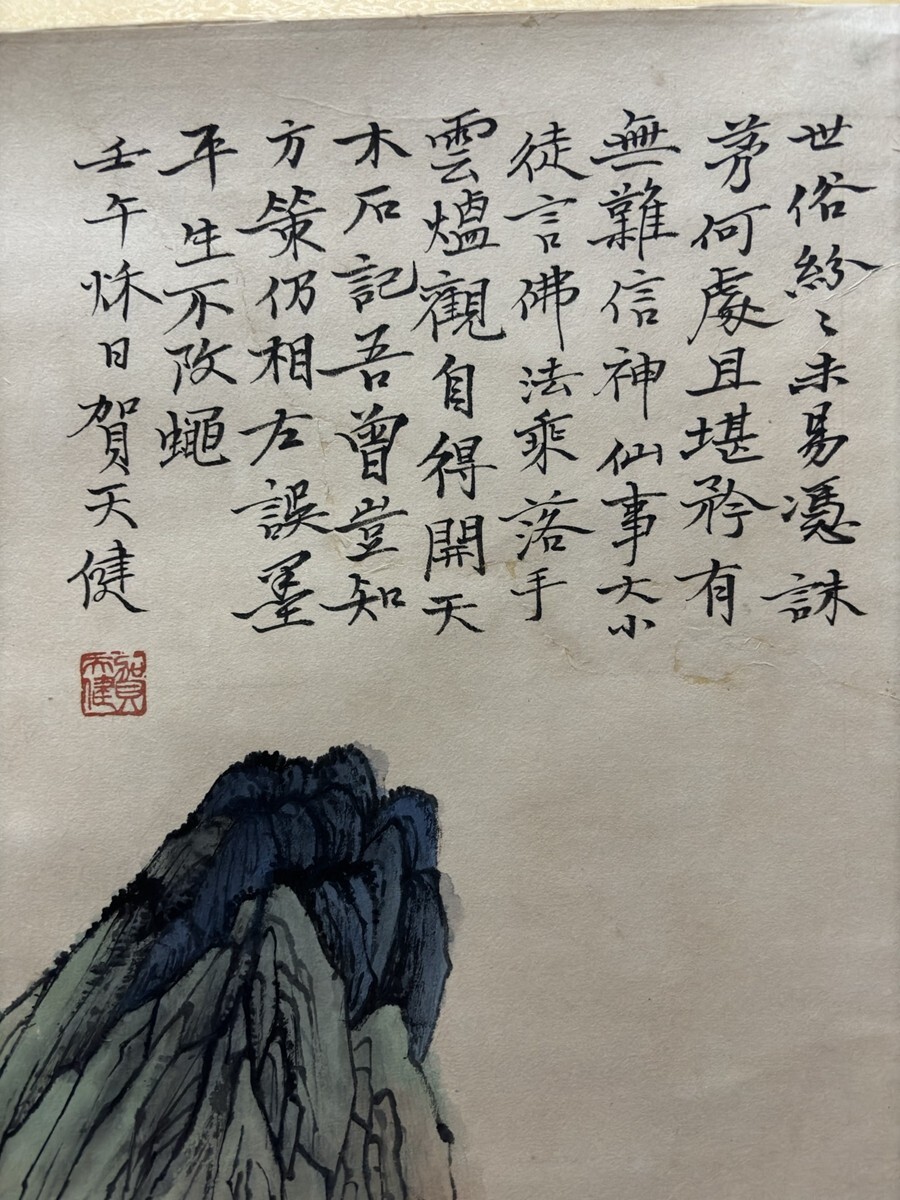 世俗紛〻未易憑誅
茅何處且堪矜有
無難信神仙事大小
徒言佛法乘落手
雲熅觀自得開天
木石記吾曾豈知
方策仍相左誤墨
平生不改蠅
壬午秌日賀天健
賀天健